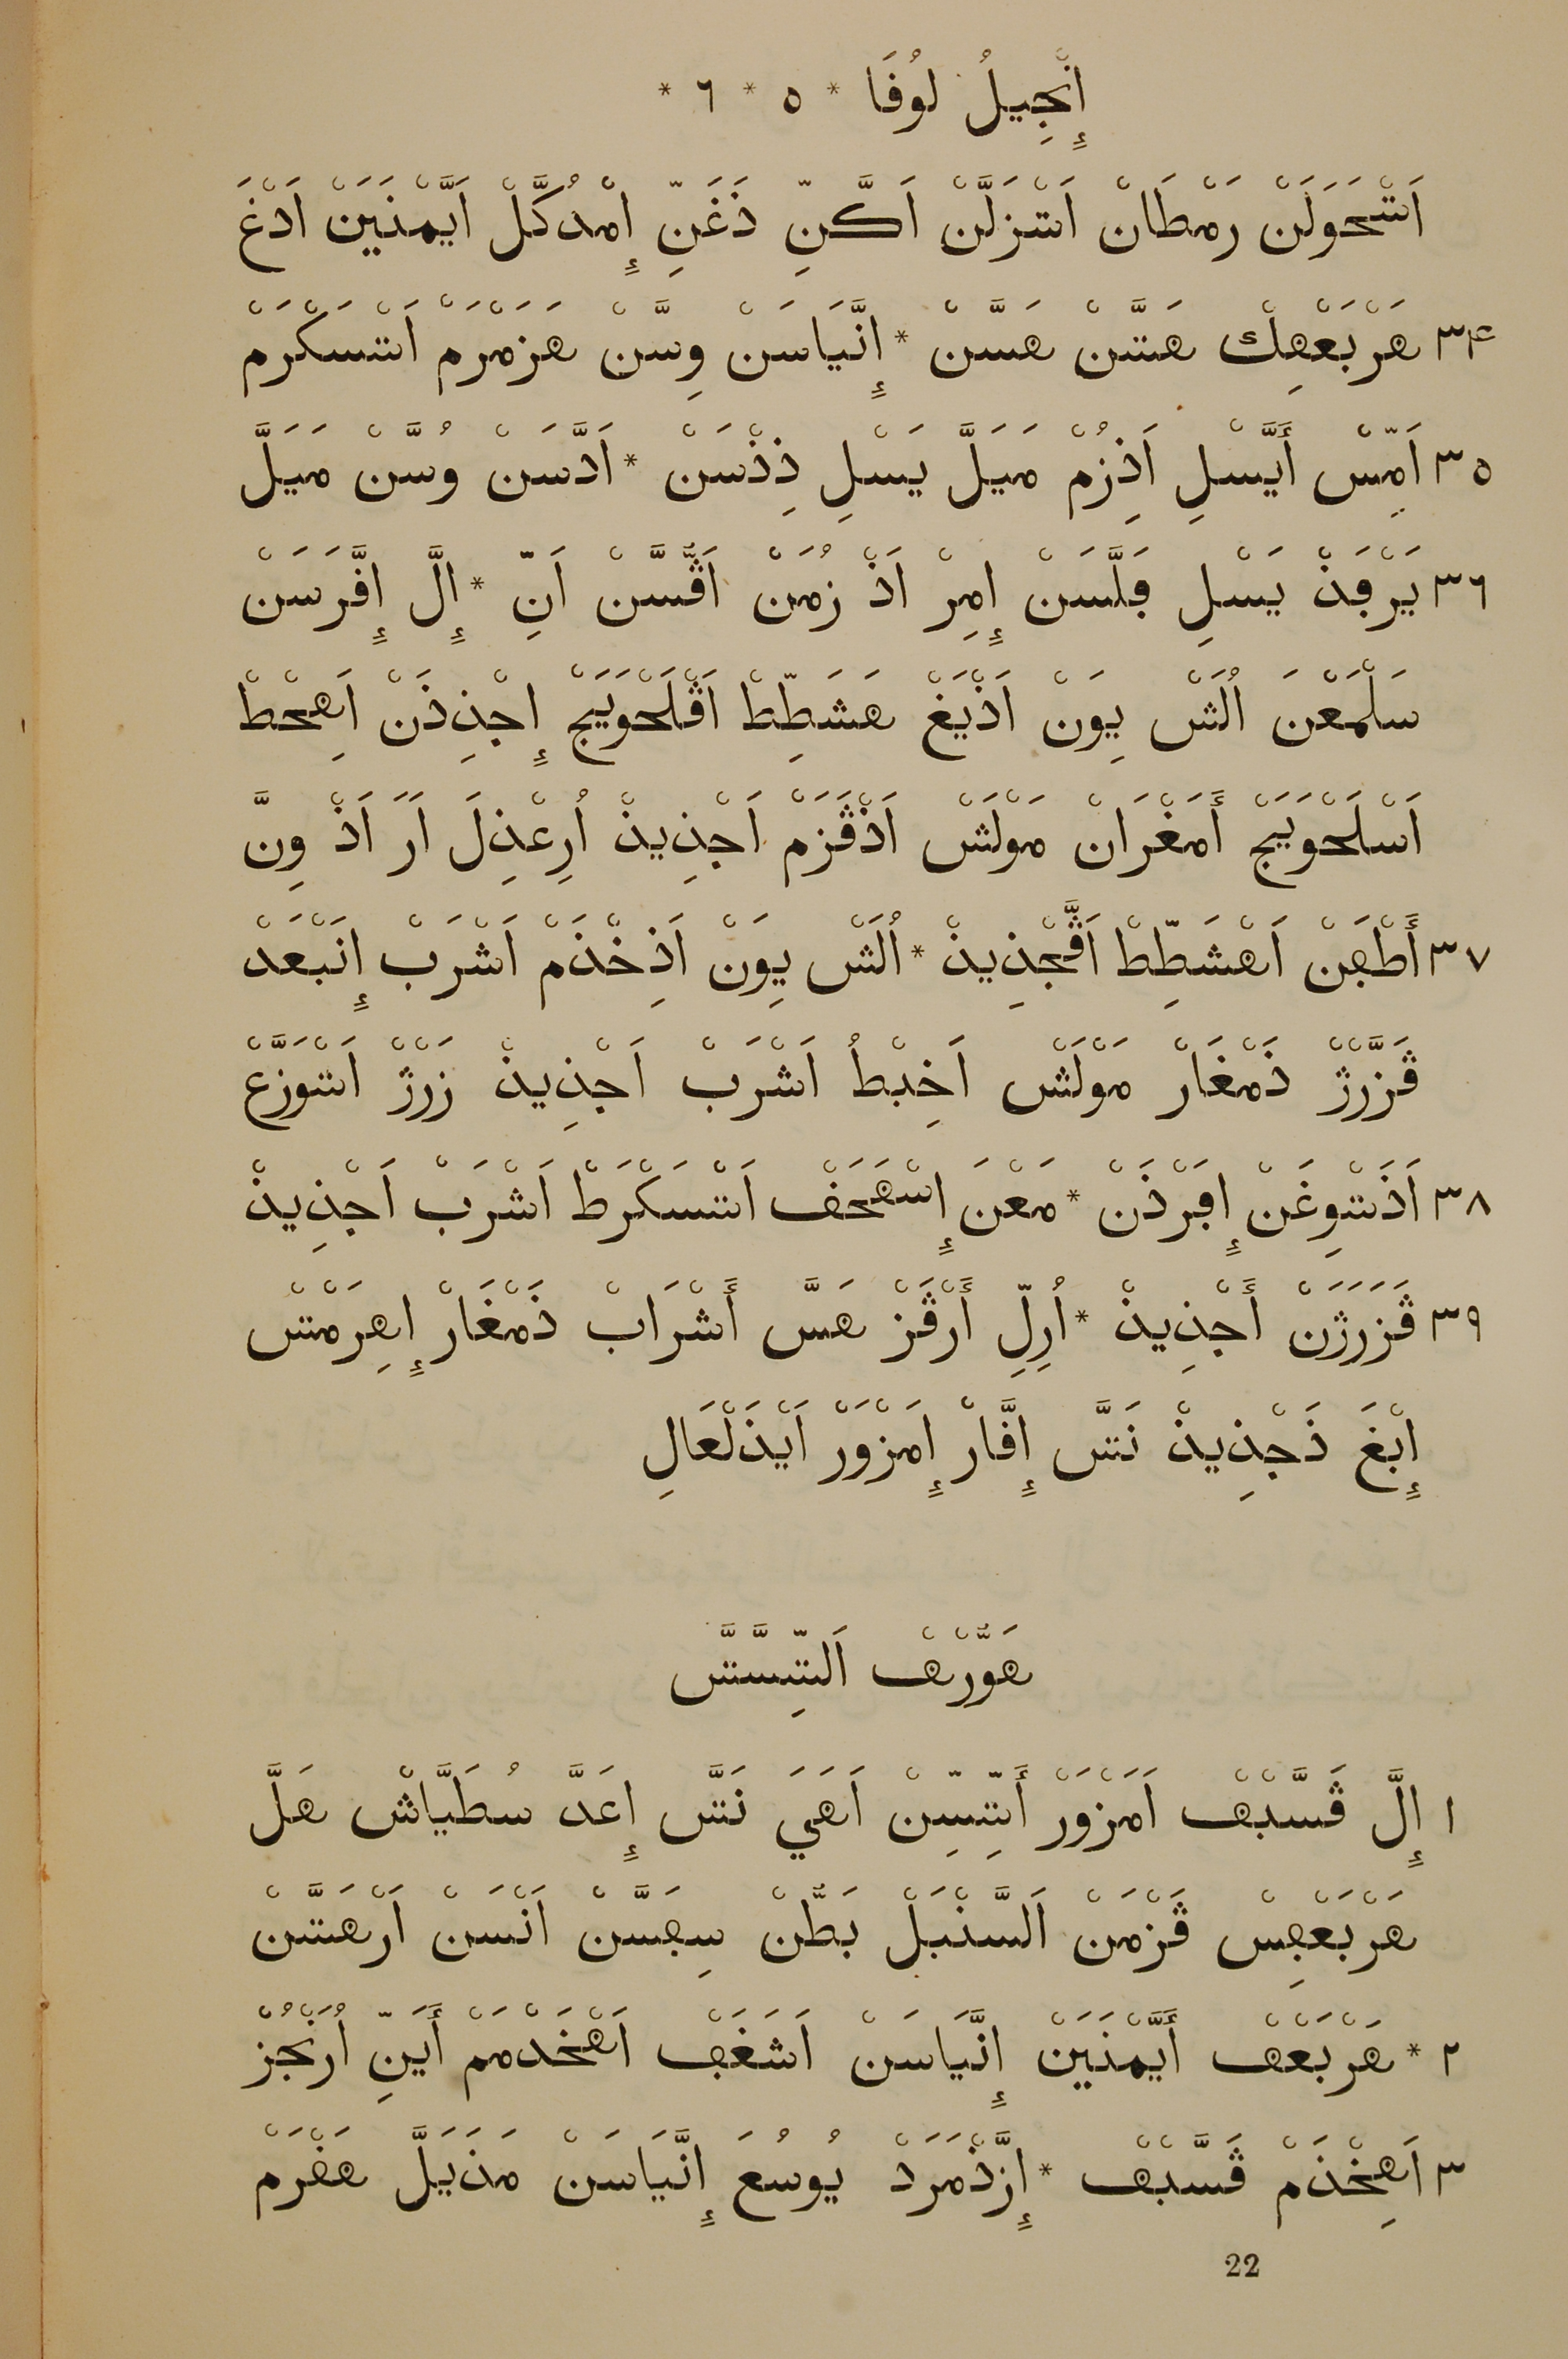 إِنْجِيلُ لوُقَا * ٥ * ٦ *
اَتْنَحَوَلَنْ رَمْطَانْ اَتْنزَلَّنْ اَكَّنِّ ذَغَنِّ إِمْدُكَّلْ اَيَّمْنَيَنْ اَدْغَ
٣۴ هَرْبَعْهِكْ هَتَّنْ هَسَّنْ * إِنَّيَاسَنْ وِسَّنْ هَزَمْرَمْ اَتْنسَكْرَمْ
٣٥ اَمِّسْ أَيَّسْلِ اَذِزُمْ مَيَلَّ يَسْلِ ذِذْسَنْ * اَدَّسَنْ وُسَّنْ مَيَلَّ
٣٦ يَرْفَذْ يَسْلِ فَلَّسَنْ إِمِرْ اَذْ زُمَنْ اَڤُّسَّنْ اَنِّ * إِلَّ إِفَّرَسَنْ
سَلْمَعْنَ اُلَشْ يِوَنْ اَذْيَغْ هَشَطِّطْ اَڤْلَحْوَيَجْ إِجْذِذَنْ اَهِحْطْ
اَسْلَحْوَيَجْ أَمَغْرَانْ مَوْلَشْ اَذْڤَزَمْ اَجْذِيذْ اُرِعْذِلَ اَرَ اَذْ وِنَّ
٣٧ أَطْفَنْ اَهْشَطِّطْ اَڤَّجْذِيذْ * اُلَشْ يِوَنْ اَذِخْذَمْ اَشْرَبْ إِنَبْعَدْ
ڤَزَّرْژْ ذَمْغَارْ مَوْلَشْ اَخِبْطُ اَشْرَبْ اَجْذِيذْ زَرْژْ اَتْنوَزَّعْ
٣٨ اَذَتْنوِغَنْ إِفَرْذَنْ * مَعْنَ إِسْهَحَفْ اَتْنسَكْرَطْ اَشْرَبْ اَجْذِيذْ
٣٩ ڤَزَرَژَنْ أَجْذِيذْ * اُرِلِّ أَرْڤَزْ هَسَّ أَشْرَابْ ذَمْغَارْ إِهِرَمْتْسْ
إِبْغَ ذَجْذِيذْ نَتَّس إِفَّارْ إِمَزْوَرْ اَيْذَلْعَالِ
هَوُّرْهْ اَلتِّسَّتَّس
١ إِلَّ ڤَسَّبْهْ اَمَزْوَرْ أَنِتِّسِّنْ اَهَيَ نَتَّس إِعَدَّ سُطَيَّاشْ هَلَّ
هَرْبَعْهِسْ ڤَزْمَنْ اَلسَّنْبَلْ بَطُّنْ سِفَسَّنْ اَنْسَنْ اَرْهَتَّنْ
٢ * هَرْبَعْهْ أَيَّمْنَيَنْ إِنَّيَاسَنْ اَشَغَفْ اَهْخَدْمَمْ أَيَنِّ اُرَنْجُزْ
٣ اَهِخْذَمْ ڤَسَّبْهْ * إِزَّذْمَرَدْ يُوسُعَ إِنَّيَاسَنْ مَذَيَلَّ هَغْرَمْ
22